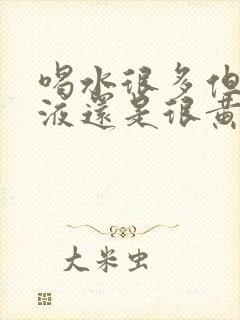 喝水很多但
液還是很黃
大米虫